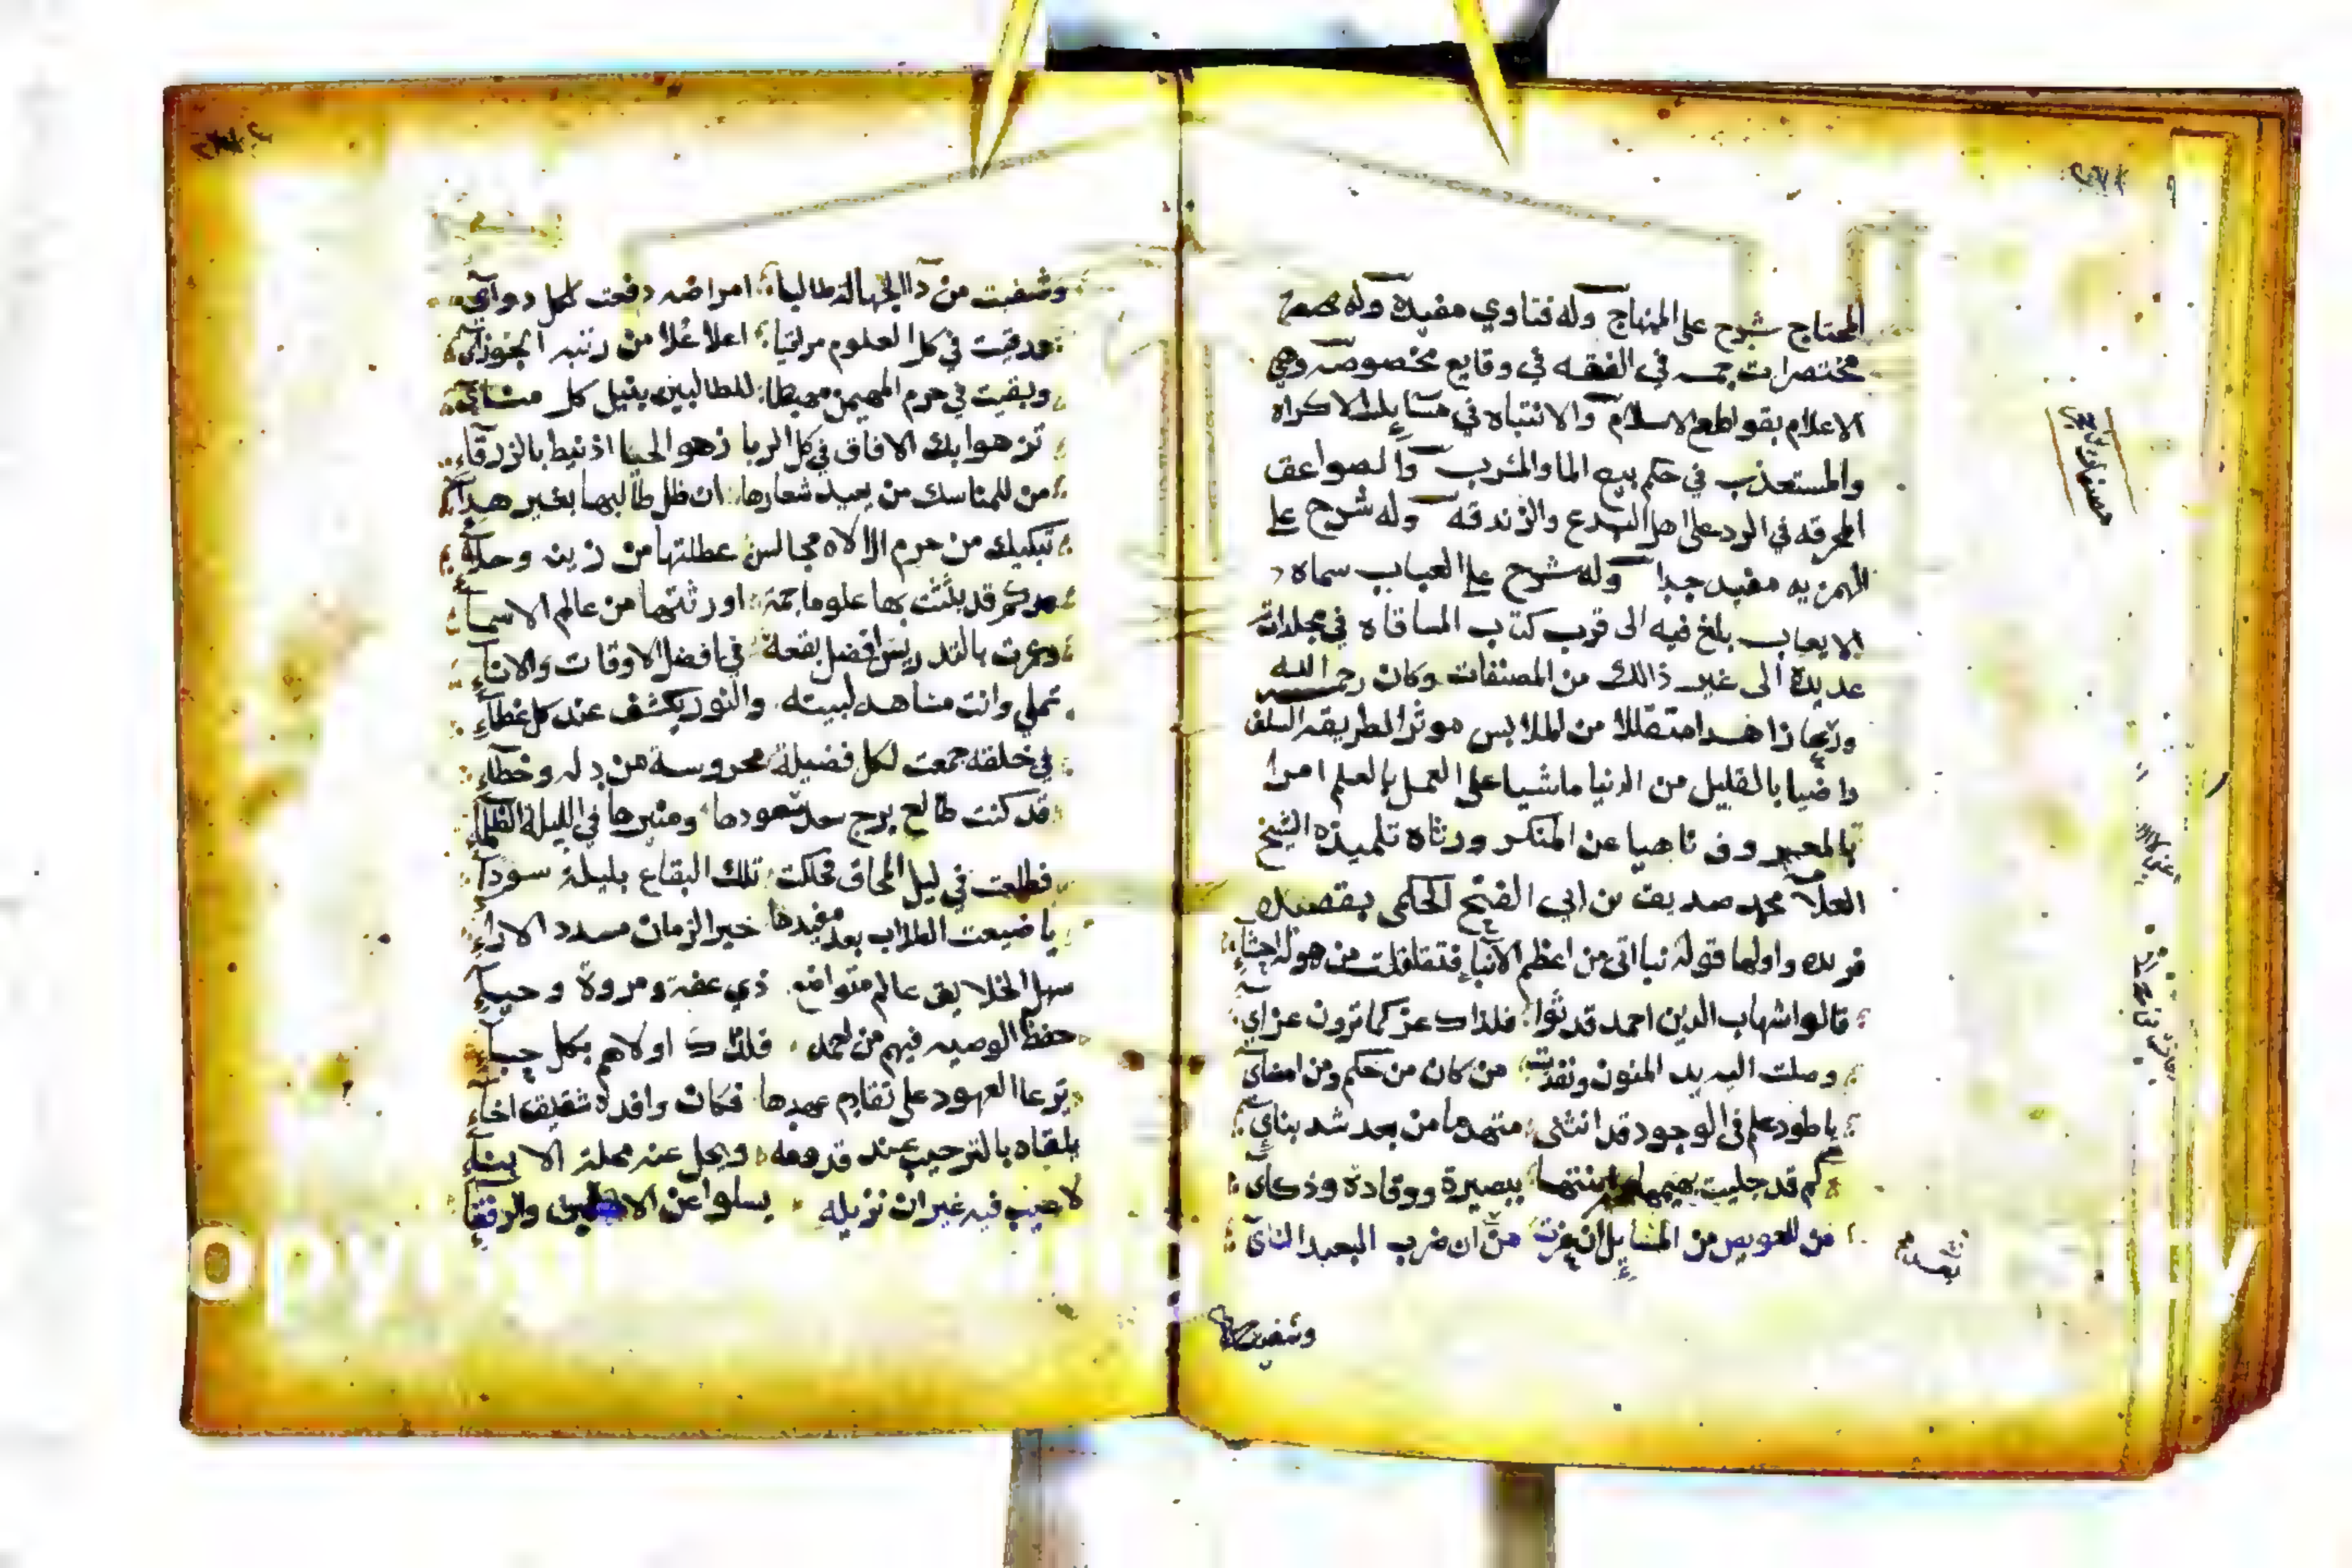 المحتاج شرح على المنهاج وله فتاوي مفيدة وله
مختصرات جمه في الفقه في وقايع مخصوصه وهي
الاعلام بقواطع الاسلام والانتباه في مسايل الاكراه
والمستعذب في حكم بيع الما والمشرب والصواعق
المحرقه في الرد على اهل البدع والزندقه وله شرح على
الهمزيه مفيد جدا وله شرح على العباب سماه
الايعاب بلغ فيه الى قرب كتاب المساقاه في مجلدات
عديدة الى غير ذالك من المصنفات وكان رحمه الله
ورعا زاهدا متقللا من الملابس موثرا لطريقه السلف
راضيا بالقليل من الدنيا ماشيا على العمل بالعلم امرا
بالمعروف ناهيا عن المنكر ورثاه تلميذه الشيخ
العلا محمد صديق بن ابي الفتح الحكمي بقصيده
فريده واولها قوله نبا اتى من اعظم الانباء فتقلقلت من هوله احشاء
قالوا شهاب الدين احمد قد ثوا فلذاك عز كما ترون عزاي
وصلت اليه يد المنون ونفذت من كان من حكم ومن امضاي
يا طود علم في الوجود قد انثنى متهدما من بعد شد بناي
كم قد جليت ببصيرة ووقادة وذكاي
من للعويص من المسايل ان عزت من ان ضرب البعيد الناي
وشفيت
وشفيت من دا الجهالة طالبا امراضه دفعت لكل دواي
ورقيت في كل العلوم مراقيا اعلا علا من رتبه الجوزاي
وبقيت في حرم المهيمن مهبطا للطالبين بنيل كل منــاي
تزهوا بك الافاق في كل الربا زهو الحيا اذ نيط بالزرقاء
من للمناسك من يعيد شعارها ان ظل طالبها بغير هداء
تبكيك من حرم الالاه مجالس عطلتها من زينه وحلاء
كم قد بثثت بها علوما جمة اورثتها من عالم الاسما
وعمرت بالتدريس افضل بقعة في افضل الاوقات والاناء
تملي وانت مشاهد لبيته والنور يكشف عند كل غطاء
في خلقه جمعت لكل فضيلة محروسة من زله وخطاء
قد كنت طالع برج سعد سعودها ومنيرها في الليلة الظلماء
فطلعت في ليل المحاق فحلكت تلك البقاع بليلة سودآ
يا ضيعت الطلاب بعد مفيدها خير الزمان مسدد الاراء
سهل الخلايق عالم متواضع ذي عفة ومروة وحياء
حفظ الوصيه فيهم من احمد فلذاك اولاهم بكل حباء
يرعا العهود على تقادم عهدها فكان وافده شقيق اخاء
يلقاه بالترحيب عند قدومه ويحل عنه محلة الابناء
لا عيب فيه غير ان نزيله يسلوا عن الاهلين والرفقاء